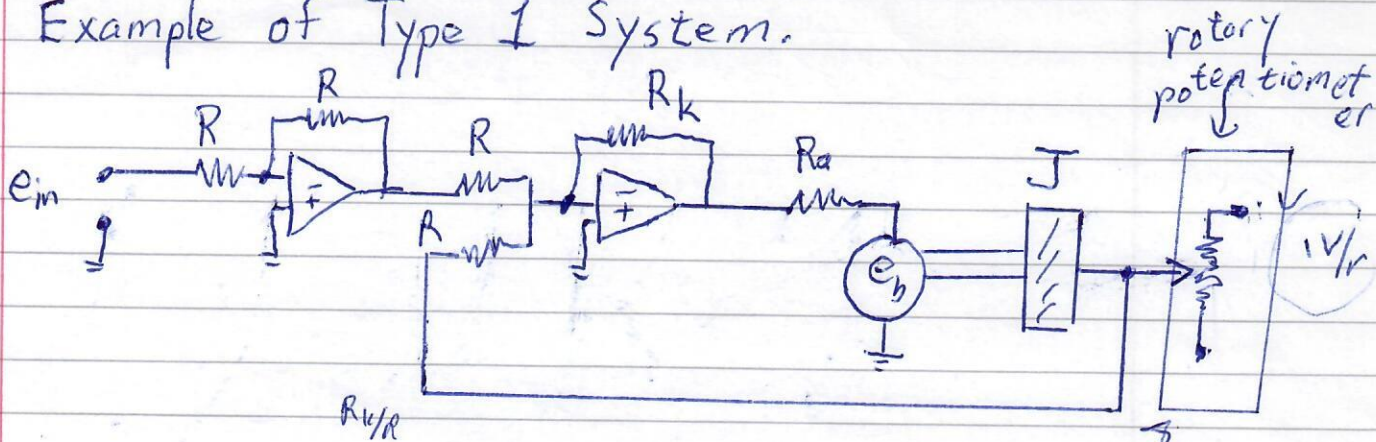 Example of Type 1 System.
rotary
potentiomet
er
R
R
R
R
R_k
R_a
J
e_in
e_b
1V/r
R_k/R